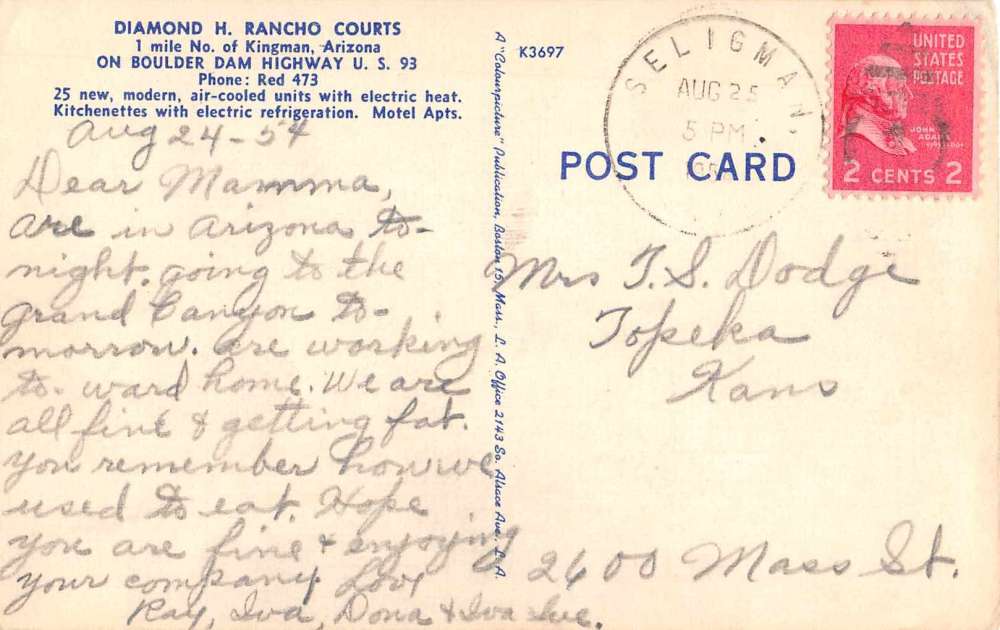 DIAMOND H. RANCHO COURTS
1 mile No. of Kingman, Arizona
ON BOULDER DAM HIGHWAY U. S. 93
Phone: Red 473
25 new, modern, air-cooled units with electric heat.
Kitchenettes with electric refrigeration. Motel Apts.
Aug 24-54
Dear Mamma,
are in Arizona to-
night. going to the
grand Canyon to-
morrow. are working
to-ward home. We are
all fine & getting fat.
you remember how we
used to eat. Hope
you are fine & enjoying
your company. Love
Ray, Iva, Dona & Iva Sue.
A "Colourpicture" Publication, Boston 15, Mass., L. A. Office 2143 So. Alsace Ave., L. A.
K3697
POST CARD
SELIGMAN
AUG 25
5 PM
UNITED
STATES
POSTAGE
JOHN
ADAMS
2 CENTS 2
Mrs T. S. Dodge
Topeka
Kans
2600 Mass St.